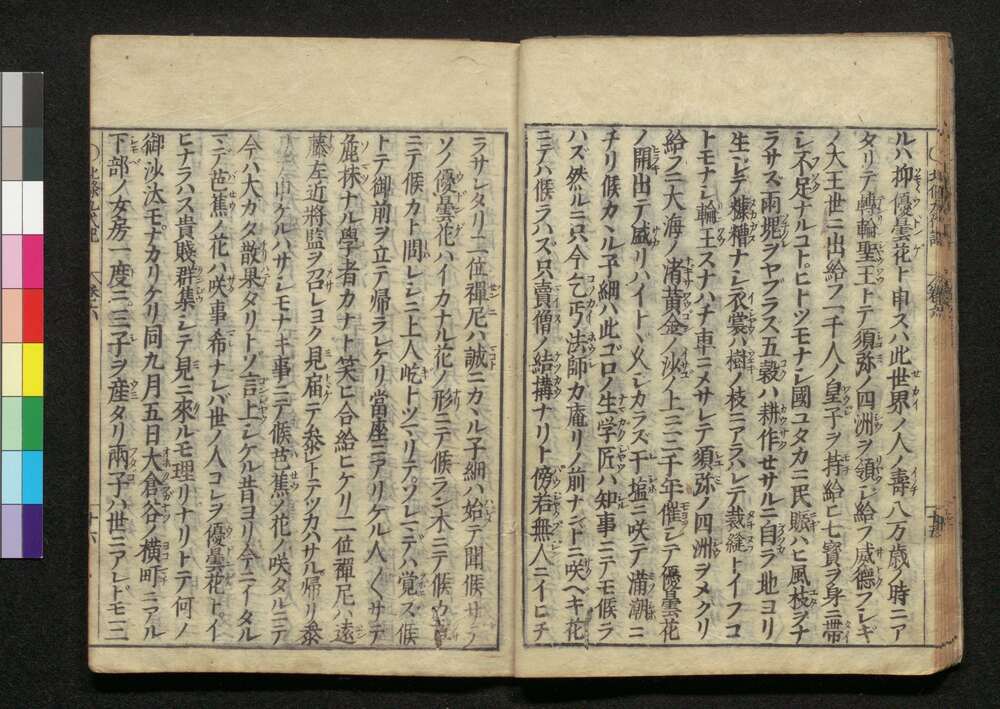 ルハ抑優曇花ト申スハ此世界ノ人ノ壽八万歳ノ時ニア
タリテ轉輪聖王トテ須弥ノ四洲ヲ領シ給フ威德フレギ
ノ大王世ニ出給フ一千人ノ皇子ヲ持給ヒ七寳ヲ身ニ帶
シ不足ナルコトヒトツモナシ國ユタカニ民賑ハヒ風枝ヲナ
ラサス雨塊ヲヤブラス五穀ハ耕作セサルニ自ラ地ヨリ
生シテ糠糟ナシ衣裳ハ樹ノ枝ニアラハレテ裁縫トイフコ
トモナシ輪王スナハチ車ニメサレテ須弥ノ四洲ヲメクリ
給フニ大海ノ渚黄金ノ沙ノ上ニ三千年催シテ優曇花
ノ開出テ盛リハイト久シカラズ干塩ニ咲テ満潮ニ
チリ候カヽル子細ハ此ゴロノ生学匠ハ知事ニテモ候ラ
ハズ然ルニ只今乞丐法師カ庵リノ前ナンドニ咲ヘキ花
ニテハ候ラハズ只賣僧ノ結搆ナリト傍若無人ニイヒチ
ラサレタリ二位禪尼ハ誠ニカヽル子細ハ始テ聞候サテ
ソノ優曇花ハイカナル花ノ形ニテ候ラン木ニテ候カ草
ニテ候カト問レシニ上人屹トツマリテソレマテハ覚ス候
トテ御前ヲ立テ帰ラレケリ當座ニアリケル人〱サテ
麁抹ナル學者カナト笑ヒ合給ヒケリ二位禪尼ハ遠
藤左近將監ヲ召レヨク見届テ参レトテツカハサル帰リ参
リ申ケルハサシモナキ事ニテ候芭蕉ノ花ノ咲タルニテ
今ハ大カタ散果タリトソ言上シケル昔ヨリ今ニイタル
マデ芭蕉ノ花ハ咲事希ナレバ世ノ人コレヲ優曇花トイ
ヒナラハス貴賤群集シテ見ニ來ルモ理リナリトテ何ノ
御沙汰モナカリケリ同九月五日大倉谷ノ横町ニアル
下部ノ女房一度ニ三子ヲ産タリ兩子ハ世ニアレトモ三